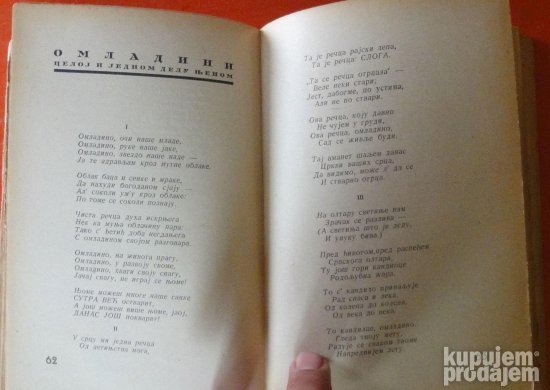 ОМЛАДИНИ
ЦЕЛОЈ И ЈЕДНОМ ДЕЛУ ЊЕНОМ
I
Омладино, очи наше младе,
Омладино, руке наше јаке,
Омладино, звездо наше наде —
Ја те здрављам кроз мутне облаке.
Облак баца и сенке и мраке,
Да находи богоданом сјају —
Ал' соколи ужу кроз облаке:
По томе се соколи познају.
Чиста речца духа искрњега
Нек ка муња облачину пара:
Тако с' ћетић доба негдањега
С омладином својом разговара.
Омладино, на многа прагу,
Омладино, у развоју њоме,
Омладино, хвати своју снагу,
Јачај снагу, не играј се њоме!
Њоме можеш многе наше санке
СУТРА ВЕЋ остварит,
А још можеш њиме, јаој,
ДАНАС ЈОШ покварит!
II
У срцу ми једна речца
Од детињства нога,
62
Та је речца рајски лепа,
Та је речца: СЛОГА.
„Та се речца отрцала" —
Веле неки стари;
Јест, дабогме, по устима,
Али не по ствари.
Ова речца, коју давно
Не чујем у груди,
Ова речца, омладино,
Сад се живље буди.
Тај аманет шаљем данас
Цркви ваших срца,
Да видимо, може л' да се
И стварно отрца.
III
На олтару светиње нам
Зрачак се разлива —
(А светиња што је деду,
И унуку бива.)
Пред њивогом, пред распећем
Српскога олтара,
Ту још гори кандиоце
Родољубива жара.
То с' кандило прихваљује
Рад спаса и лека,
Од колена до колена,
Од века до века.
То кандилце, омладино,
Гледа твоју
Радује се сваком твоме
Напреднијем лету.
kupujem
prodajem